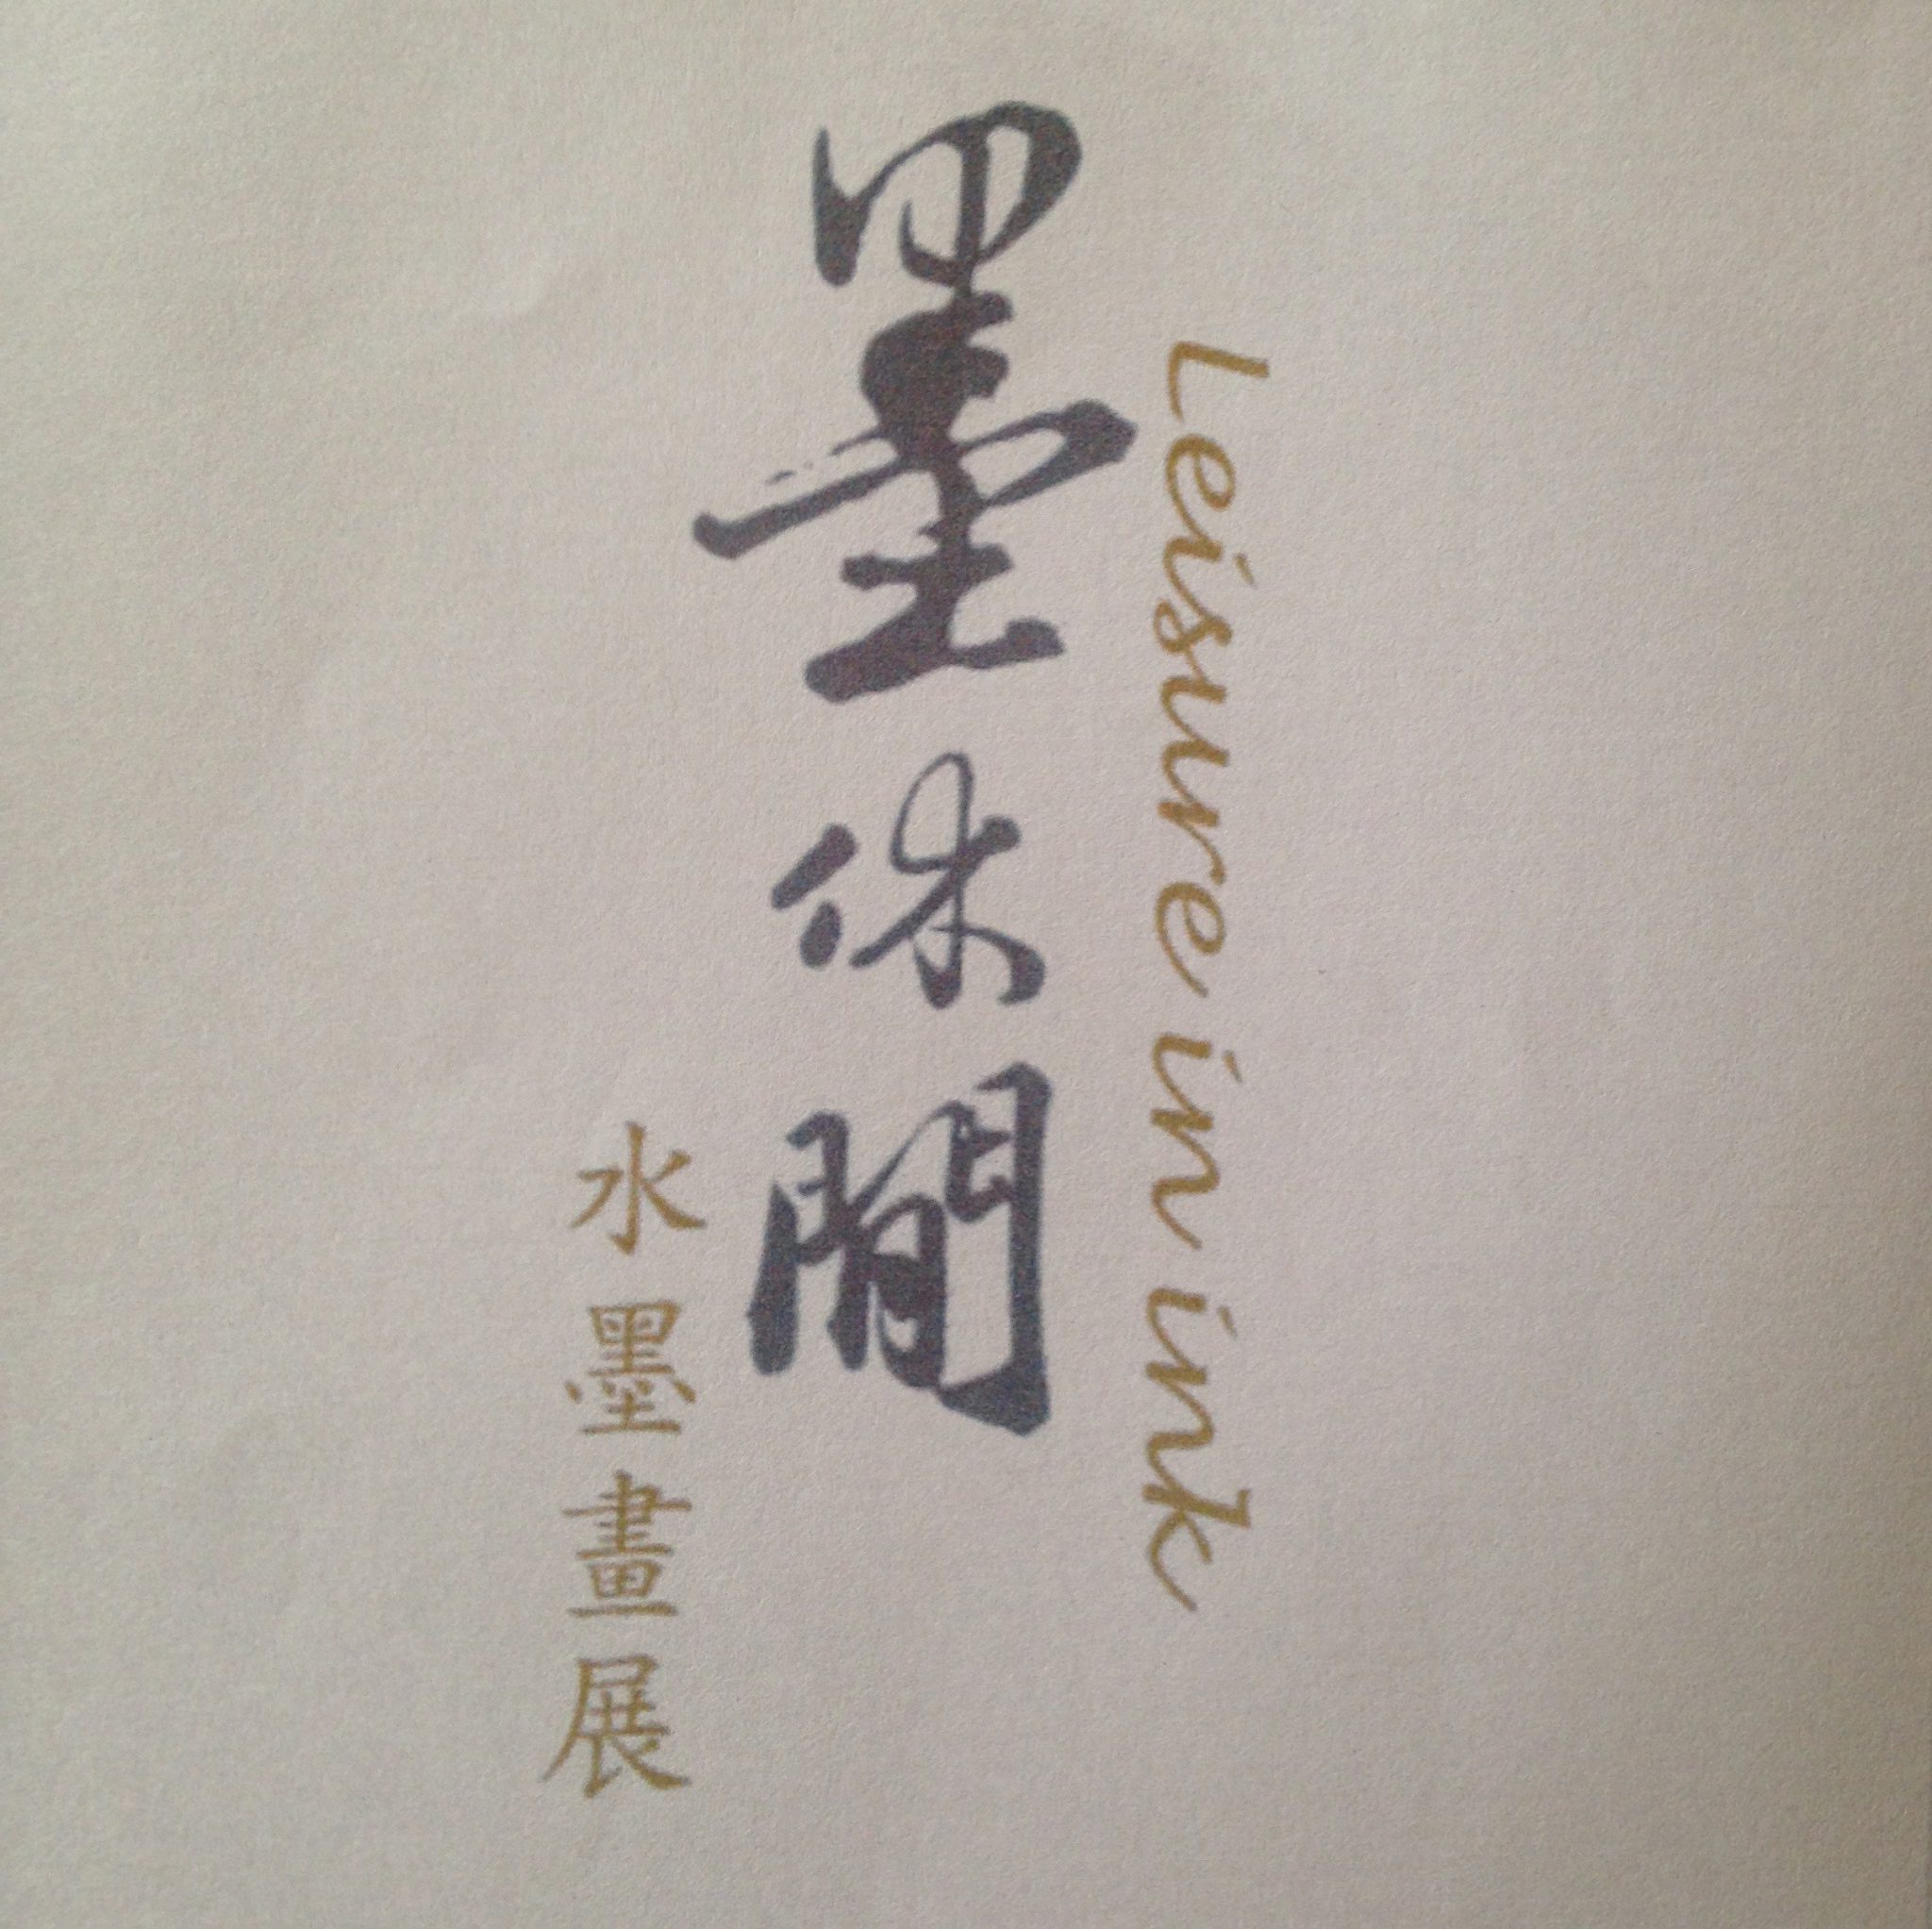 Leisure in ink
墨休閒
水墨畫展